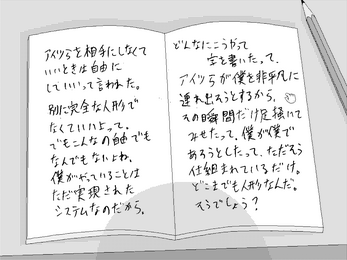 アイツらを相手にしなくて
いいときは自由に
していいって言われた。
別に完全な人形で
なくていいよって。
でもこんなの自由でも
なんでもないよね。
僕がやっていることは
ただ実現された
システムなのだから。
どんなにこうやって
字を書いたって、
アイツらが僕を非平凡に
連れ出そうとするから。
その瞬間だけ足掻いて
みせたって、僕が僕で
あろうとしたって、ただそう
仕組まれているだけ。
どこまでも人形なんだ。
そうでしょう？